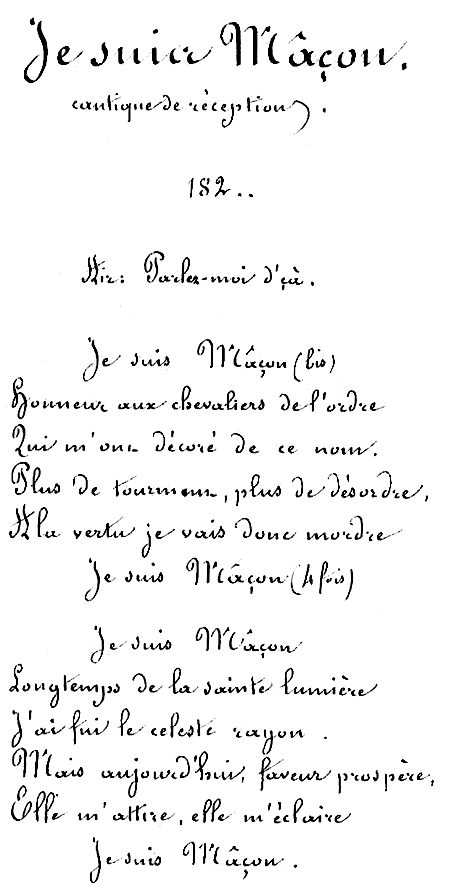 Je suis Mâçon.
cantique de réception.
182..
Air: Parlez-moi d'çà.
Je suis Mâçon (bis)
Honneur aux chevaliers de l'ordre
Qui m'ont décoré de ce nom.
Plus de tourment, plus de désordre,
A la vertu je vais donc mordre
Je suis Mâçon (4 fois)
Je suis Mâçon
Longtemps de la sainte lumière
J'ai fui le celeste rayon.
Mais aujourd'hui, faveur prospère,
Elle m'attire, elle m'éclaire
Je suis Mâçon.